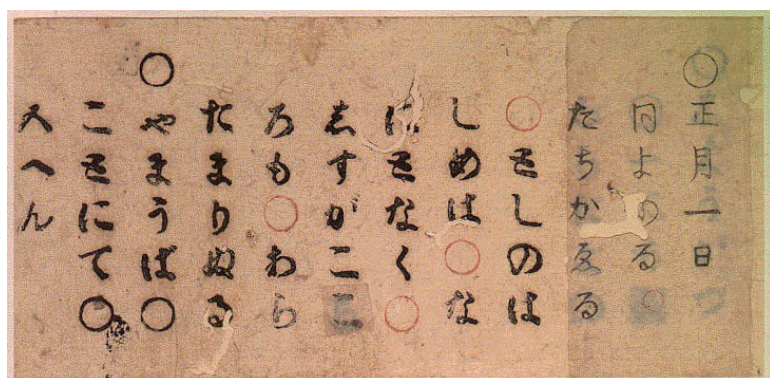 ○正月一日
同よめる○
たちかゑる
○としのは
しめは○な
にとなく○
志すがここ
ろも○わら
たまりぬる
○やまうば○
ことにて○
へん